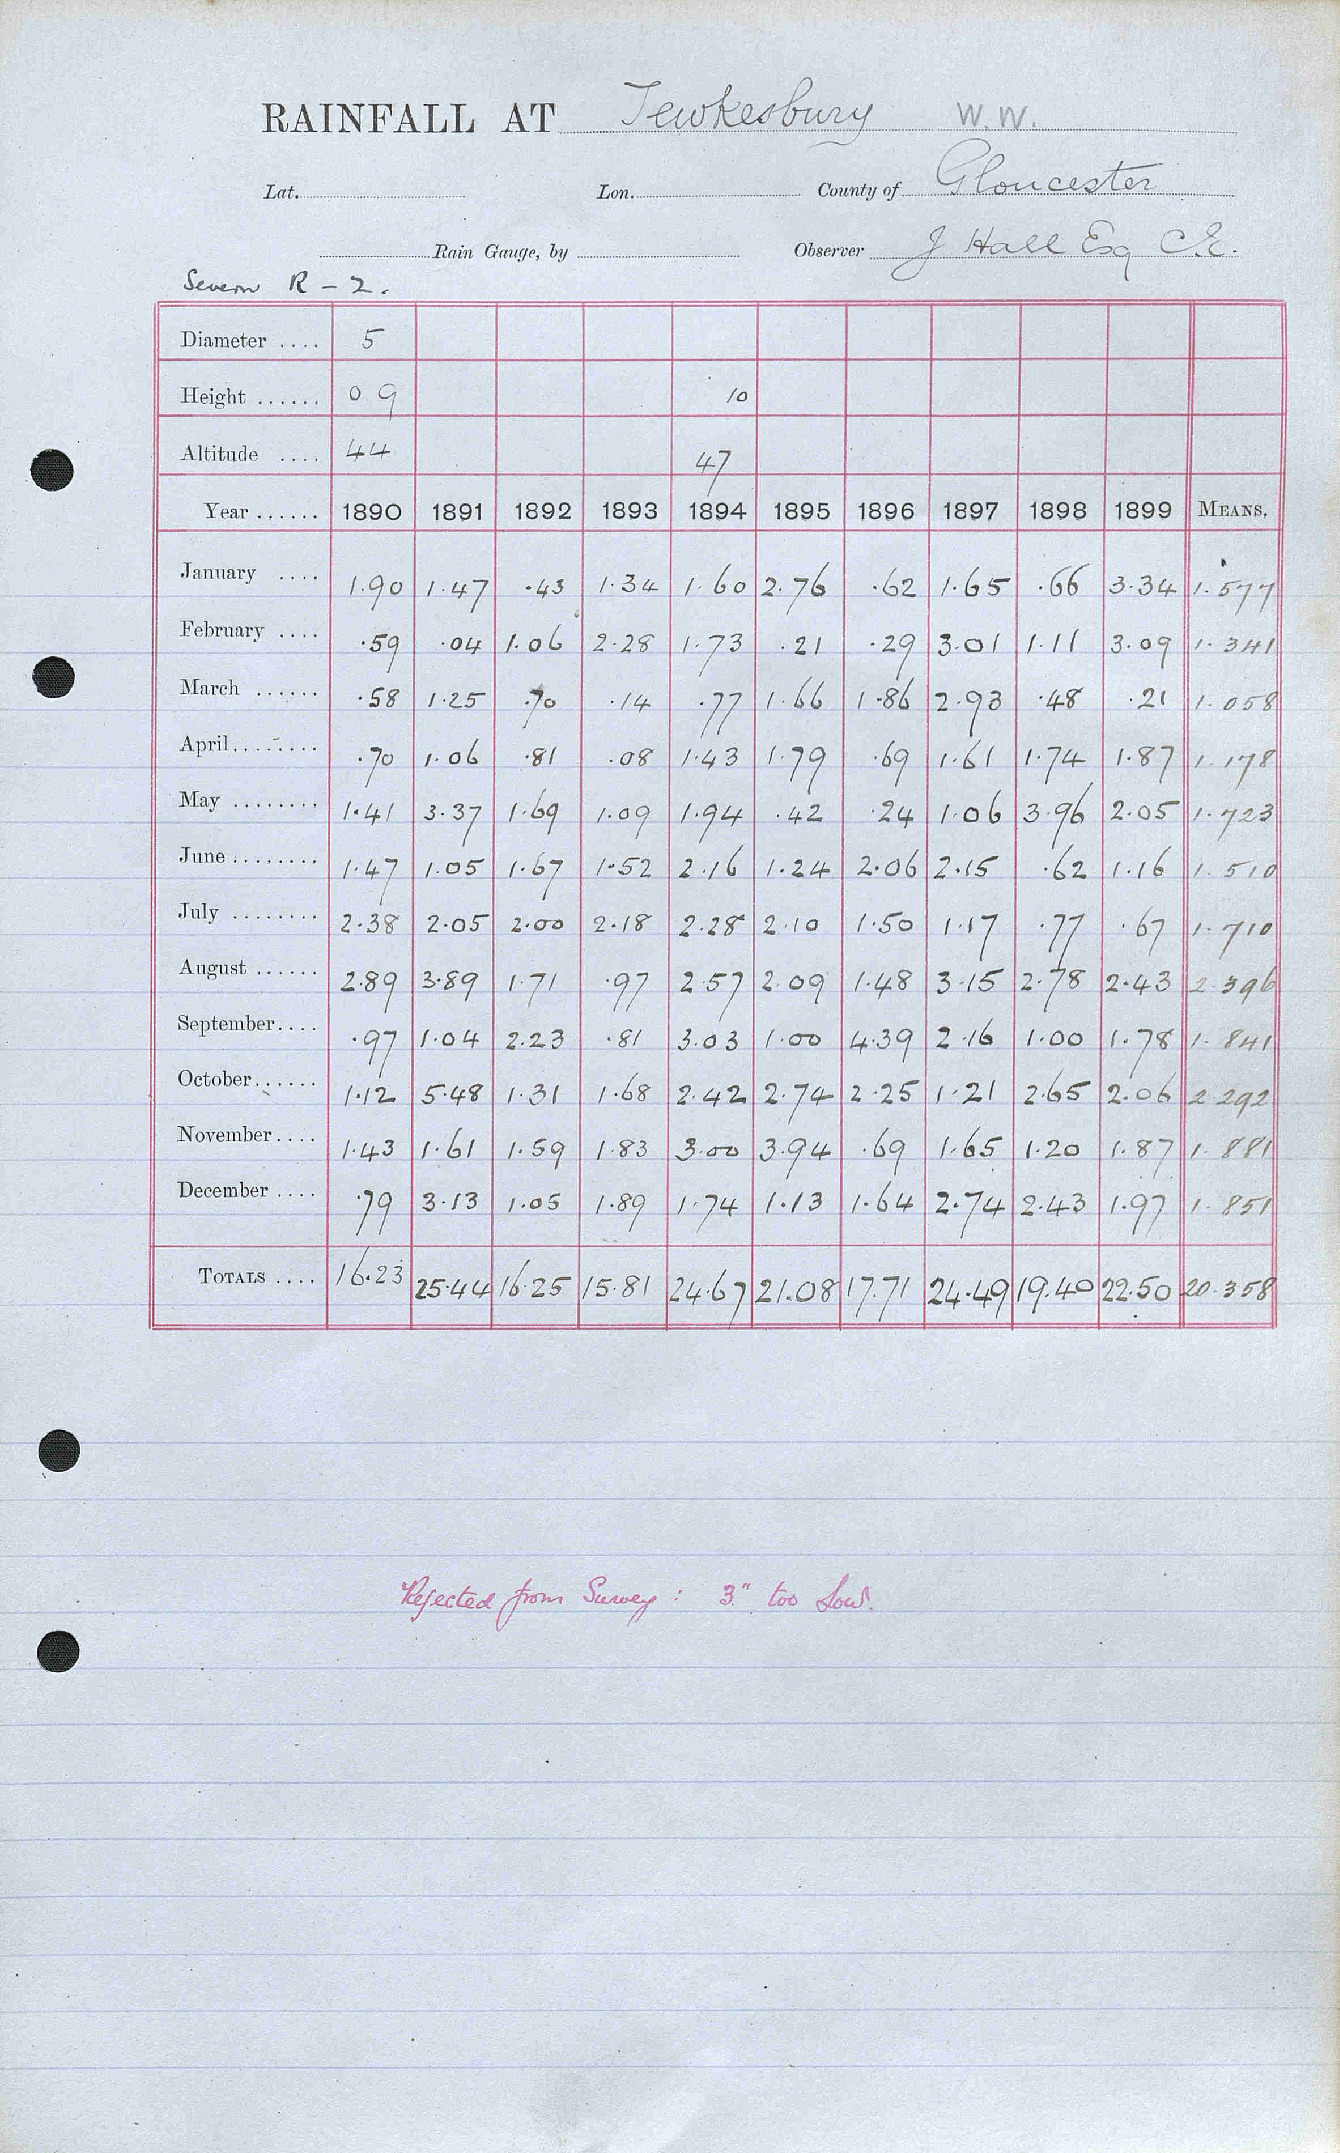 RAINFALL AT Tewkesbury W.W.
Lat. Lon. County of Gloucester
Rain Gauge, by Observer J Hall Esq C.E.
Severn R - 2.
Diameter .... 5
Height ...... 0 9 10
Altitude .... 44 47
Year ...... 1890 1891 1892 1893 1894 1895 1896 1897 1898 1899 MEANS.
January .... 1.90 1.47 .43 1.34 1.60 2.76 .62 1.65 .66 3.34 1.577
February .... .59 .04 1.06 2.28 1.73 .21 .29 3.01 1.11 3.09 1.341
March ...... .58 1.25 .70 .14 .77 1.66 1.86 2.93 .48 .21 1.058
April........ .70 1.06 .81 .08 1.43 1.79 .69 1.61 1.74 1.87 1.178
May ........ 1.41 3.37 1.69 1.09 1.94 .42 .24 1.06 3.96 2.05 1.723
June ........ 1.47 1.05 1.67 1.52 2.16 1.24 2.06 2.15 .62 1.16 1.510
July ........ 2.38 2.05 2.00 2.18 2.28 2.10 1.50 1.17 .77 .67 1.710
August ...... 2.89 3.89 1.71 .97 2.57 2.09 1.48 3.15 2.78 2.43 2.396
September.... .97 1.04 2.23 .81 3.03 1.00 4.39 2.16 1.00 1.78 1.841
October...... 1.12 5.48 1.31 1.68 2.42 2.74 2.25 1.21 2.65 2.06 2.292
November.... 1.43 1.61 1.59 1.83 3.00 3.94 .69 1.65 1.20 1.87 1.881
December .... .79 3.13 1.05 1.89 1.74 1.13 1.64 2.74 2.43 1.97 1.851
TOTALS .... 16.23 25.44 16.25 15.81 24.67 21.08 17.71 24.49 19.40 22.50 20.358
Rejected from Survey : 3" too low.